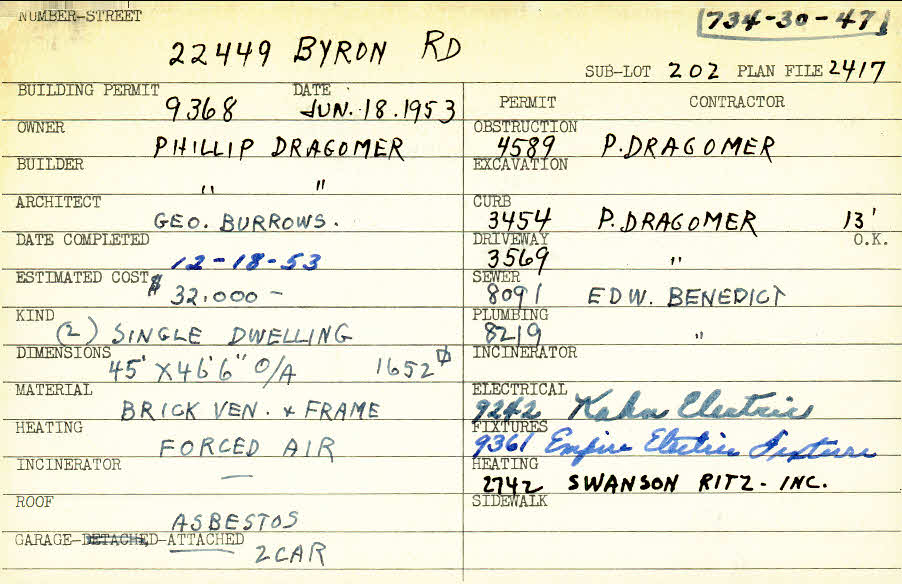 NUMBER-STREET
734-30-47
22449 BYRON RD
SUB-LOT 202 PLAN FILE 2417
BUILDING PERMIT DATE
9368 JUN. 18. 1953
OWNER
PHILLIP DRAGOMER
BUILDER
" "
ARCHITECT
GEO. BURROWS.
DATE COMPLETED
12-18-53
ESTIMATED COST
$ 32,000 -
KIND
(2) SINGLE DWELLING
DIMENSIONS
45' X 46'6" O/A 1652
MATERIAL
BRICK VEN. & FRAME
HEATING
FORCED AIR
INCINERATOR
—
ROOF
ASBESTOS
GARAGE-DETACHED-ATTACHED
2 CAR
PERMIT CONTRACTOR
OBSTRUCTION
4589 P. DRAGOMER
EXCAVATION
CURB
3454 P. DRAGOMER 13'
DRIVEWAY O.K.
3569 "
SEWER
8091 EDW. BENEDICT
PLUMBING
8219 "
INCINERATOR
ELECTRICAL
9242 Kahn Electric
FIXTURES
9361 Empire Electric Fixture
HEATING
2742 SWANSON RITZ - INC.
SIDEWALK